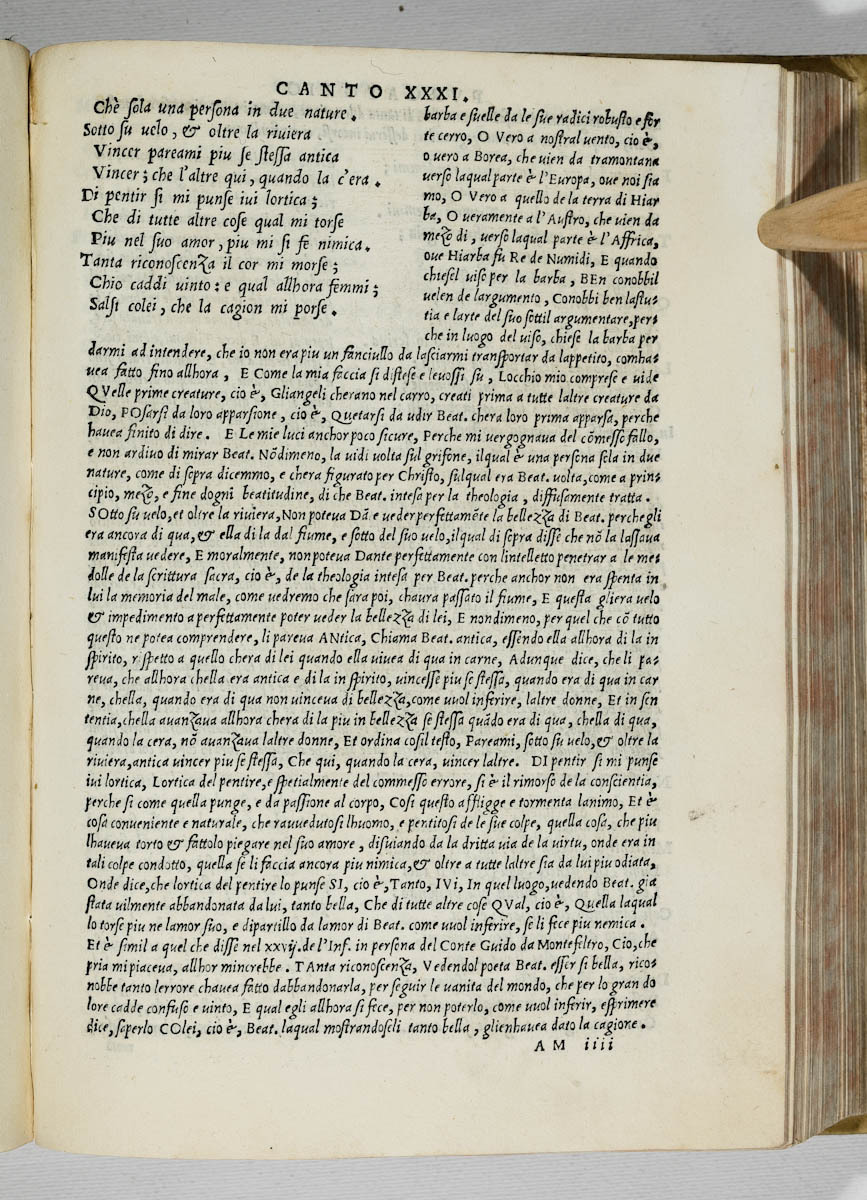 CANTO XXXI.
Chè ſola una perſona in due nature.
Sotto ſu uelo, & oltre la riuiera
Vincer pareami piu ſe ſteſſa antica
Vincer; che l'altre qui, quando la c'era.
Di pentir ſi mi punſe iui lortica;
Che di tutte altre coſe qual mi torſe
Piu nel ſuo amor, piu mi ſi fe nimica.
Tanta riconoſcenza il cor mi morſe;
Chio caddi uinto: e qual allhora femmi;
Salſi colei, che la cagion mi porſe.
barba e ſuelle da le ſue radici robuſto e for
te cerro, O Vero a noſtral uento, cio è,
o uero a Borea, che uien da tramontana
uerſo laqual parte è l'Europa, oue noi ſia
mo, O Vero a quello de la terra di Hiar
ba, O ueramente a l'Auſtro, che uien da
mezo di, uerſo laqual parte è l'Affrica,
oue Hiarba fu Re de Numidi, E quando
chieſel uiſo per la barba, BEn conobbil
uelen de largumento, Conobbi ben laſtu-
tia e larte del ſuo ſottil argumentare, per-
che in luogo del uiſo, chieſe la barba per
darmi ad intendere, che io non era piu un fanciullo da laſciarmi tranſportar da lappetito, comha-
uea fatto fino allhora, E Come la mia faccia ſi diſteſe e leuoſſi ſu, Locchio mio compreſe e uide
QVelle prime creature, cio è, Gliangeli cherano nel carro, creati prima a tutte laltre creature da
Dio, POſarſi da loro apparſione, cio è, Quetarſi da udir Beat. chera loro prima apparſa, perche
hauea finito di dire. E Le mie luci anchor poco ſicure, Perche mi uergognaua del cõmeſſo fallo,
e non ardiuo di mirar Beat. Nõdimeno, la uidi uolta ſul grifone, ilqual è una perſona ſola in due
nature, come di ſopra dicemmo, e chera figurato per Chriſto, ſulqual era Beat. uolta, come a prin-
cipio, mezo, e fine dogni beatitudine, di che Beat. inteſa per la theologia, diffuſamente tratta.
SOtto ſu uelo, et oltre la riuiera, Non poteua Dã e ueder perfettamẽte la bellezza di Beat. perche gli
era ancora di qua, & ella di la dal fiume, e ſotto del ſuo uelo, ilqual di ſopra diſſe che nõ la laſſaua
manifeſta uedere, E moralmente, non poteua Dante perfettamente con lintelletto penetrar a le me-
dolle de la ſcrittura ſacra, cio è, de la theologia inteſa per Beat. perche anchor non era ſpenta in
lui la memoria del male, come uedremo che ſara poi, chaura paſſato il fiume, E queſta gliera uelo
& impedimento a perfettamente poter ueder la bellezza di lei, E nondimeno, per quel che cõ tutto
queſto ne potea comprendere, li pareua ANtica, Chiama Beat. antica, eſſendo ella allhora di la in
ſpirito, riſpetto a quello chera di lei quando ella uiuea di qua in carne, Adunque dice, che li pa-
reua, che allhora chella era antica e di la in ſpirito, uinceſſe piu ſe ſteſſa, quando era di qua in car
ne, chella, quando era di qua non uinceua di bellezza, come uuol inferire, laltre donne, Et in ſen
tentia, chella auanzaua allhora chera di la piu in bellezza ſe ſteſſa quãdo era di qua, chella di qua,
quando la cera, nõ auanzaua laltre donne, Et ordina coſil teſto, Pareami, ſotto ſu uelo, & oltre la
riuiera, antica uincer piu ſe ſteſſa, Che qui, quando la cera, uincer laltre. DI pentir ſi mi punſe
iui lortica, Lortica del pentire, e ſpetialmente del commeſſo errore, ſi è il rimorſo de la conſcientia,
perche ſi come quella punge, e da paſſione al corpo, Coſi queſto affligge e tormenta lanimo, Et è
coſa conueniente e naturale, che rauuedutoſi lhuomo, e pentitoſi de le ſue colpe, quella coſa, che piu
lhaueua torto & fattolo piegare nel ſuo amore, diſuiando da la dritta uia de la uirtu, onde era in
tali colpe condotto, quella ſe li faccia ancora piu nimica, & oltre a tutte laltre ſia da lui piu odiata,
Onde dice, che lortica del pentire lo punſe SI, cio è, Tanto, IVi, In quel luogo, uedendo Beat. gia
ſtata uilmente abbandonata da lui, tanto bella, Che di tutte altre coſe QVal, cio è, Quella laqual
lo torſe piu ne lamor ſuo, e dipartillo da lamor di Beat. come uuol inferire, ſe li fece piu nemica.
Et è ſimil a quel che diſſe nel xxvij. de l'Inf. in perſona del Conte Guido da Montefeltro, Cio, che
pria mi piaceua, allhor mincrebbe. TAnta riconoſcenza, Vedendol poeta Beat. eſſer ſi bella, rico-
nobbe tanto lerrore chauea fatto dabbandonarla, per ſeguir le uanita del mondo, che per lo gran do
lore cadde confuſo e uinto, E qual egli allhora ſi fece, per non poterlo, come uuol inferir, eſprimere
dice, ſaperlo COlei, cio è, Beat. laqual moſtrandoſeli tanto bella, glienhauea dato la cagione.
AM iiii